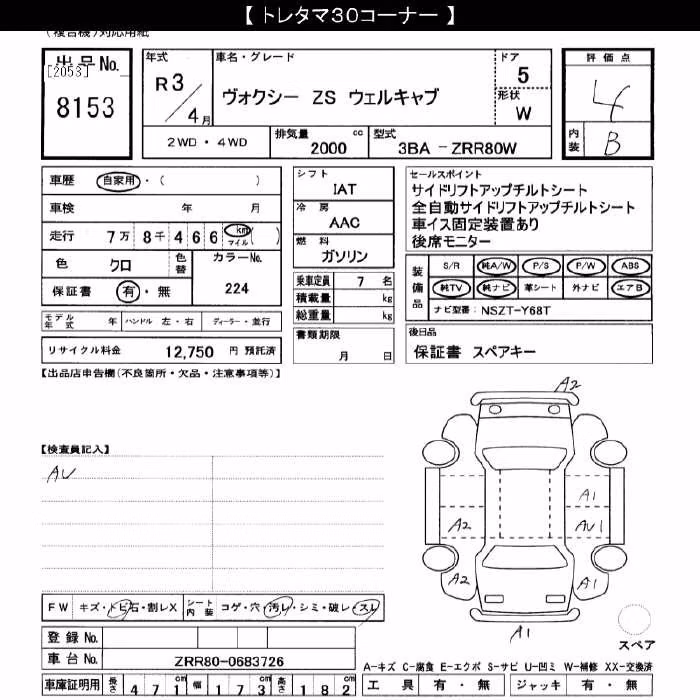 【 トレタマ30コーナー 】
(複合機)対応用紙
出品No.
[2053]
8153
年式
R3/4月
車名・グレード
ヴォクシー ZS ウェルキャブ
ドア
5
形状
W
評価点
4
内装
B
2WD・4WD
排気量 cc
2000
型式
3BA - ZRR80W
車歴 自家用・( )
車検 年 月
走行 7万 8千 4 6 6 km マイル ( )
色 クロ
色替
カラーNo.
224
保証書 有・無
シフト
IAT
冷房
AAC
燃料
ガソリン
乗車定員 7 名
積載量 kg
総重量 kg
セールスポイント
サイドリフトアップチルトシート
全自動サイドリフトアップチルトシート
車イス固定装置あり
後席モニター
装備品
S/R 純A/W P/S P/W ABS
純TV 純ナビ 革シート 外ナビ エアB
ナビ型番: NSZT-Y68T
モデル年式 年 ハンドル 左・右 ディーラー・並行
リサイクル料金 12,750 円 預託済
書類期限
月 日
後日品
保証書 スペアキー
【出品店申告欄(不良箇所・欠品・注意事項等)】
【検査員記入】
AU
A2
A1
A2
AU1
A2
A1
A1
スペア
FW キズ・トビ石・割レX
シート内装 コゲ・穴・汚レ・シミ・破レ・スレ
登録No.
車台No. ZRR80-0683726
車庫証明用 長さ 471cm 幅 173cm 高さ 182cm
A-キズ C-腐食 E-エクボ S-サビ U-凹ミ W-補修 XX-交換済
工具 有・無 ジャッキ 有・無